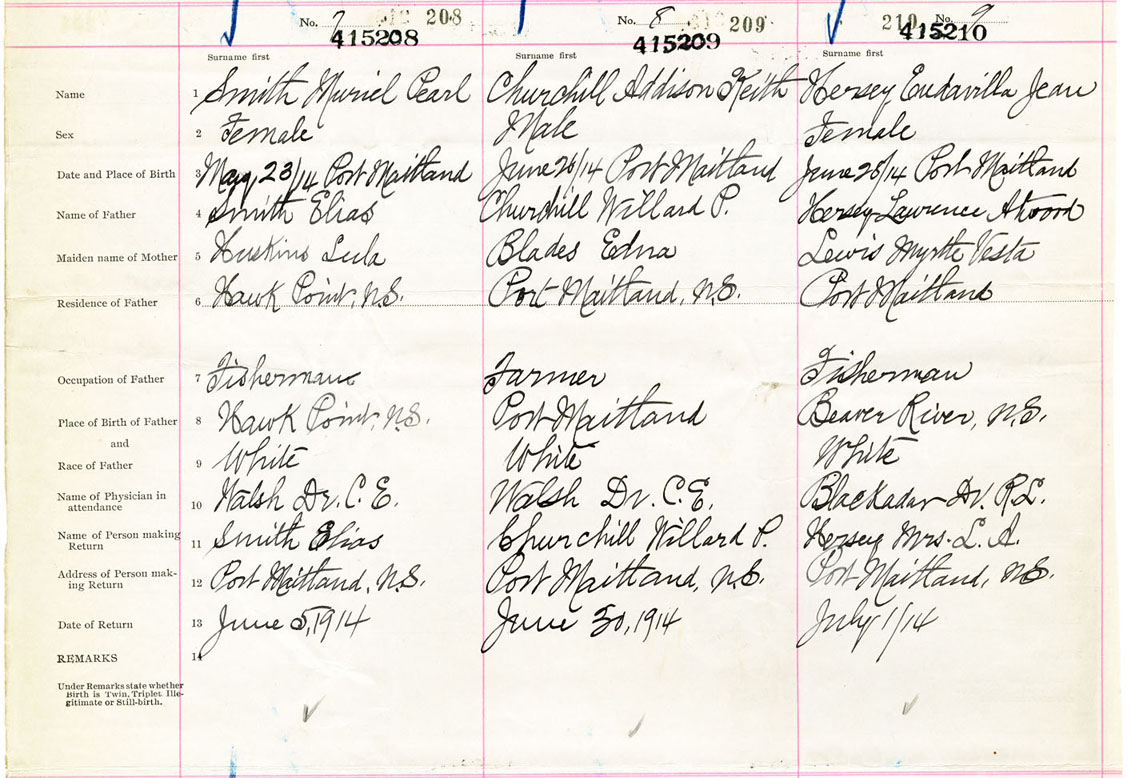 No. 7 208 No. 8 209 210 No. 9
415208 415209 415210
Surname first Surname first Surname first
Name 1 Smith Muriel Pearl Churchill Addison Keith Hersey Eudavilla Jean
Sex 2 Female Male Female
Date and Place of Birth 3 May 23/14 Port Maitland June 26/14 Port Maitland June 28/14 Port Maitland
Name of Father 4 Smith Elias Churchill Willard P. Hersey Lawrence Atwood
Maiden name of Mother 5 Huskins Lula Blades Edna Lewis Myrtle Vesta
Residence of Father 6 Hawk Point, N.S. Port Maitland, N.S. Port Maitland
Occupation of Father 7 Fisherman Farmer Fisherman
Place of Birth of Father 8 Hawk Point, N.S. Port Maitland Beaver River, N.S.
and
Race of Father 9 White White White
Name of Physician in
attendance 10 Walsh Dr. C. E. Walsh Dr. C. E. Blackadar Dr. R.L.
Name of Person making
Return 11 Smith Elias Churchill Willard P. Hersey Mrs. L. A.
Address of Person mak-
ing Return 12 Port Maitland, N.S. Port Maitland, N.S. Port Maitland, N.S.
Date of Return 13 June 5, 1914 June 30, 1914 July 1/14
REMARKS 14
Under Remarks state whether
Birth is Twin, Triplet, Ille-
gitimate or Still-birth.